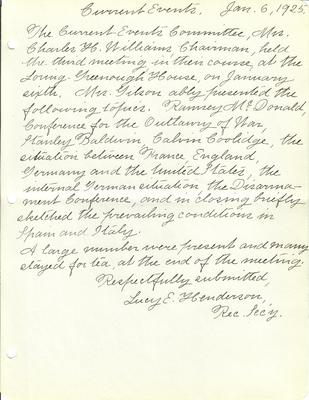 Current Events. Jan. 6, 1925.
The Current Events Committee, Mrs.
Charles H. Williams Chairman, held
the third meeting in their course, at the
Loring Greenough House, on January
sixth. Mrs. Gilson ably presented the
following topics. Ramsey McDonald,
Conference for the Outlawry of War,
Stanley Baldwin Calvin Coolidge, the
situation between France England,
Germany and the United States, the
internal German situation the Disarma-
ment Conference, and in closing briefly
sketched the prevailing conditions in
Spain and Italy.
A large number were present and many
stayed for tea, at the end of the meeting.
Respectfully submitted,
Lucy E. Henderson,
Rec. Sec'y.